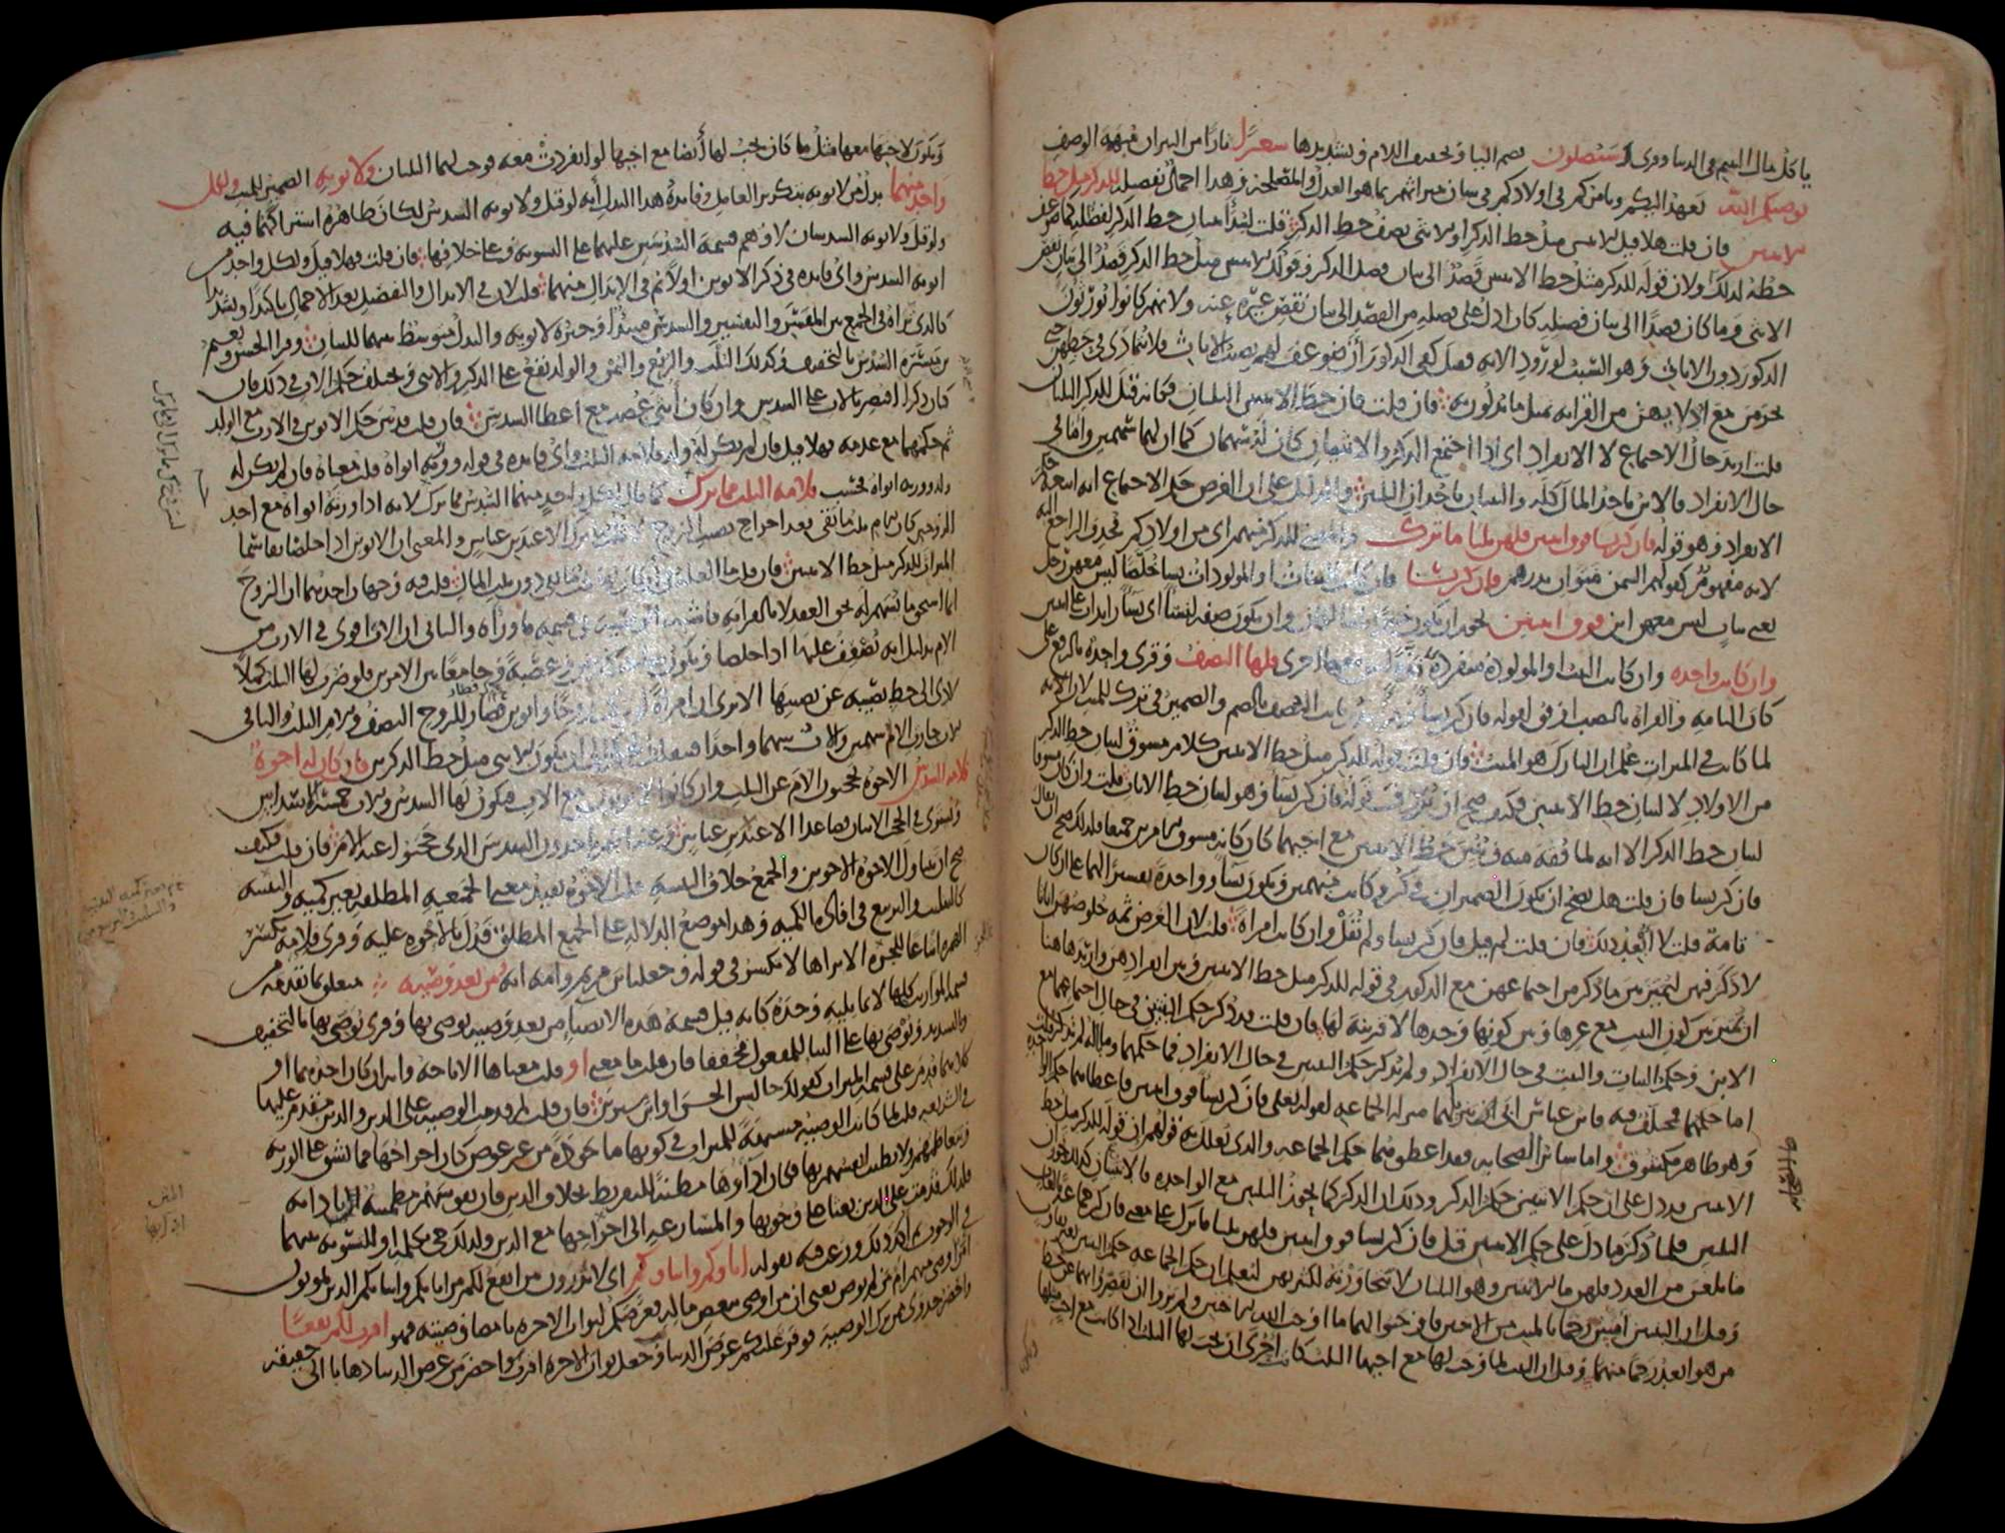 يأكل مال اليتيم في الدنيا وقرئ وسيصلون بضم الياء وتخفيف اللام وتشديدها سعيرا نارا من النيران مبهمة الوصف
يوصيكم الله يعهد إليكم ويأمركم في أولادكم في شأن ميراثهم بما هو العدل والمصلحة وهذا إجمال تفصيله للذكر مثل حظ
الأنثيين فإن قلت هلا قيل للأنثيين مثل حظ الذكر أو للأنثى نصف حظ الذكر قلت ليبدأ ببيان حظ الذكر لفضله كما ضوعف
حظه لذلك ولأن قوله للذكر مثل حظ الأنثيين قصد إلى بيان فضل الذكر وقولك للأنثيين مثل حظ الذكر قصد إلى بيان نقص
الأنثى وما كان قصدا إلى بيان فضله كان أدل على فضله من القصد إلى بيان نقص غيره عنه ولأنهم كانوا يورثون
الذكور دون الإناث وهو السبب لورود الآية فقيل كفى الذكور أن ضوعف لهم نصيب الإناث فلا يتمادى في حظهن حتى
يحرمن مع إدلائهن من القرابة بمثل ما يدلون به فإن قلت فإن حظ الأنثيين الثلثان فكأنه قيل للذكر الثلثان
قلت أريد حال الاجتماع لا الانفراد أي إذا اجتمع الذكر والأنثيان كان له سهمان كما أن لهما سهمين وأما في
حال الانفراد فالابن يأخذ المال كله والبنتان يأخذان الثلثين والدليل على أن الغرض حكم الاجتماع أنه أتبعه حكم
الانفراد وهو قوله فإن كن نساء فوق اثنتين فلهن ثلثا ما ترك والمعنى للذكر منهم أي من أولادكم فحذف الراجع إليه
لأنه مفهوم كقولهم السمن منوان بدرهم فإن كن نساء فإن كانت البنات أو المولودات نساء خلصا ليس معهن رجل
يعني بنات ليس معهن ابن فوق اثنتين يجوز أن يكون خبرا ثانيا لكان وأن يكون صفة لنساء أي نساء زائدات على اثنتين
وإن كانت واحدة وإن كانت البنت أو المولودة منفردة ليس معها أخرى فلها النصف وقرئ واحدة بالرفع على
كان التامة والقراءة بالنصب أوفق لقوله فإن كن نساء وقرأ زيد بن ثابت النصف بالضم والضمير في ترك للميت لأن الآية
لما كانت في الميراث علم أن التارك هو الميت فإن قلت قوله للذكر مثل حظ الأنثيين كلام مسوق لبيان حظ الذكر
من الأولاد لا لبيان حظ الأنثيين فكيف صح أن يردف قوله فإن كن نساء وهو لبيان حظ الإناث قلت وإن كان مسوقا
لبيان حظ الذكر إلا أنه لما فقه منه وتبين حظ الأنثيين مع أخيهما كان كأنه مسوق للأمرين جميعا فلذلك صح أن يقال
فإن كن نساء فإن قلت هل يصح أن يكون الضميران في كن وكانت مبهمين ويكون نساء وواحدة تفسيرا لهما على أن كان
تامة قلت لا أبعد ذلك فإن قلت لم قيل فإن كن نساء ولم يقل وإن كانت امرأة قلت لأن الغرض ثمة خلوصهن إناثا
لا ذكر فيهن ليميز بين ما ذكر من اجتماعهن مع الذكور في قوله للذكر مثل حظ الأنثيين وبين انفرادهن وأريد هاهنا
أن يميز بين كون البنت مع غيرها وبين كونها وحدها لا قرينة لها فإن قلت قد ذكر حكم البنتين في حال اجتماعهما مع
الابن وحكم البنات والبنت في حال الانفراد ولم يذكر حكم البنتين في حال الانفراد فما حكمهما وما باله لم يذكر قلت
أما حكمهما فمختلف فيه فابن عباس أبى تنزيلهما منزلة الجماعة لقوله تعالى فإن كن نساء فوق اثنتين فأعطاهما حكم الواحدة
وهو ظاهر مكشوف وأما سائر الصحابة فقد أعطوهما حكم الجماعة والذي يعلل به قولهم أن قوله للذكر مثل حظ
الأنثيين قد دل على أن حكم الأنثيين حكم الذكر وذلك أن الذكر كما يحوز الثلثين مع الواحدة فالأنثيان كذلك تحوزان
الثلثين فلما ذكر ما دل على حكم الأنثيين قيل فإن كن نساء فوق اثنتين فلهن ثلثا ما ترك على معنى فإن كن جماعة بالغات
ما بلغن من العدد فلهن ما للأنثيين وهو الثلثان لا يتجاوزنه لكثرتهن ليعلم أن حكم الجماعة حكم الثنتين بغير تفاوت
وقيل إن البنتين أمس رحما بالميت من الأختين فأوجبوا لهما ما أوجب الله للأختين ولم يروا أن يقصروا بهما عن حظ
من هو أبعد رحما منهما وقيل إن البنت لما وجب لها مع أخيها الثلث كانت أحرى أن يجب لها الثلث إذا كانت مع أخت مثلها
ويكون لأختها معها مثل ما كان يجب لها أيضا مع أخيها لو انفردت معه فوجب لهما الثلثان ولأبويه الضمير للميت ولكل
واحد منهما بدل من لأبويه بتكرير العامل وفائدة هذا البدل أنه لو قيل ولأبويه السدس لكان ظاهره اشتراكهما فيه
ولو قيل ولأبويه السدسان لأوهم قسمة السدسين عليهما على التسوية وعلى خلافها فإن قلت فهلا قيل ولكل واحد من
أبويه السدس وأي فائدة في ذكر الأبوين أولا ثم في الإبدال منهما قلت لأن في الإبدال والتفصيل بعد الإجمال تأكيدا وتشديدا
كالذي تراه في الجمع بين المفسر والتفسير والسدس مبتدأ وخبره لأبويه والبدل متوسط بينهما للبيان وقرأ الحسن ونعيم
بن ميسرة السدس بالتخفيف وكذلك الثلث والربع والثمن والولد يقع على الذكر والأنثى ويختلف حكم الأب في ذلك فإن
كان ذكرا اقتصر بالأب على السدس وإن كان أنثى عصب مع إعطاء السدس فإن قلت قد بين حكم الأبوين في الإرث مع الولد
ثم حكمهما مع عدمه فهلا قيل فإن لم يكن له ولد فلأمه الثلث وأي فائدة في قوله وورثه أبواه قلت معناه فإن لم يكن له
ولد وورثه أبواه فحسب فلأمه الثلث مما ترك كما قال لكل واحد منهما السدس مما ترك لأنه إذا ورثه أبواه مع أحد
الزوجين كان للأم ثلث ما بقي بعد إخراج نصيب الزوج لا ثلث ما ترك إلا عند بن عباس والمعنى أن الأبوين إذا خلصا تقاسما
الميراث للذكر مثل حظ الأنثيين فإن قلت ما العلة في أن كان لها ثلث ما بقي دون ثلث المال قلت فيه وجهان أحدهما أن الزوج
إنما استحق ما يسهم له بحق العقد لا بالقرابة فأشبه الوصية في قسمة ما وراءه والثاني أن الأب أقوى في الإرث من
الأم بدليل أنه يضعف عليها إذا خلصا ويكون صاحب فرض وعصبة وجامعا بين الأمرين فلو ضرب لها الثلث كملا
لأدى إلى حط نصيبه عن نصيبها ألا ترى أن امرأة لو تركت زوجا وأبوين فصار للزوج النصف وللأم الثلث والباقي
للأب حازت الأم سهمين والأب سهما واحدا فينقلب الحكم إلى أن يكون للأنثى مثل حظ الذكرين فإن كان له إخوة
فلأمه السدس الإخوة يحجبون الأم عن الثلث وإن كانوا لا يرثون مع الأب فيكون لها السدس وللأب خمسة الأسداس
ويستوي في الحجب الاثنان فصاعدا إلا عند بن عباس وعنه أنهم يأخذون السدس الذي حجبوا عنه الأم فإن قلت فكيف
صح أن يتناول الإخوة الأخوين والجمع خلاف التثنية قلت الإخوة تفيد معنى الجمعية المطلقة بغير كمية والتثنية
كالتثليث والتربيع في إفادة الكمية وهذا موضع الدلالة على الجمع المطلق فدل بالإخوة عليه وقرئ فلإمه بكسر
الهمزة إتباعا للجرة ألا تراها لا تكسر في قوله وجعلنا ابن مريم وأمه آية من بعد وصية متعلق بما تقدمه من
قسمة المواريث كلها لا بما يليه وحده كأنه قيل قسمة هذه الأنصباء من بعد وصية يوصي بها وقرئ يوصى بها بالتخفيف
والتشديد ويوصى بها على البناء للمفعول مخففا فإن قلت ما معنى أو قلت معناها الإباحة وأنه إن كان أحدهما أو
كلاهما قدم على قسمة الميراث كقولك جالس الحسن أو ابن سيرين فإن قلت لم قدمت الوصية على الدين والدين مقدم عليها
في الشريعة قلت لما كانت الوصية مشبهة للميراث في كونها مأخوذة من غير عوض كان إخراجها مما يشق على الورثة
ويتعاظمهم ولا تطيب أنفسهم بها فكان أداؤها مظنة للتفريط بخلاف الدين فإن نفوسهم مطمئنة إلى أدائه
فلذلك قدمت على الدين بعثا على وجوبها والمسارعة إلى إخراجها مع الدين ولذلك جيء بكلمة أو للتسوية بينهما
في الوجوب ثم أكد ذلك ورغب فيه بقوله آباؤكم وأبناؤكم أي لا تدرون من أنفع لكم من آبائكم وأبنائكم الذين يموتون
أمن أوصى منهم أم من لم يوص يعني أن من أوصى ببعض ماله يعرضكم لثواب الآخرة بإمضاء وصيته فهو أقرب لكم نفعا
وأحضر جدوى ممن ترك الوصية فوفر عليكم عرض الدنيا وجعل ثواب الآخرة أقرب وأحضر من عرض الدنيا ذهابا إلى حقيقة